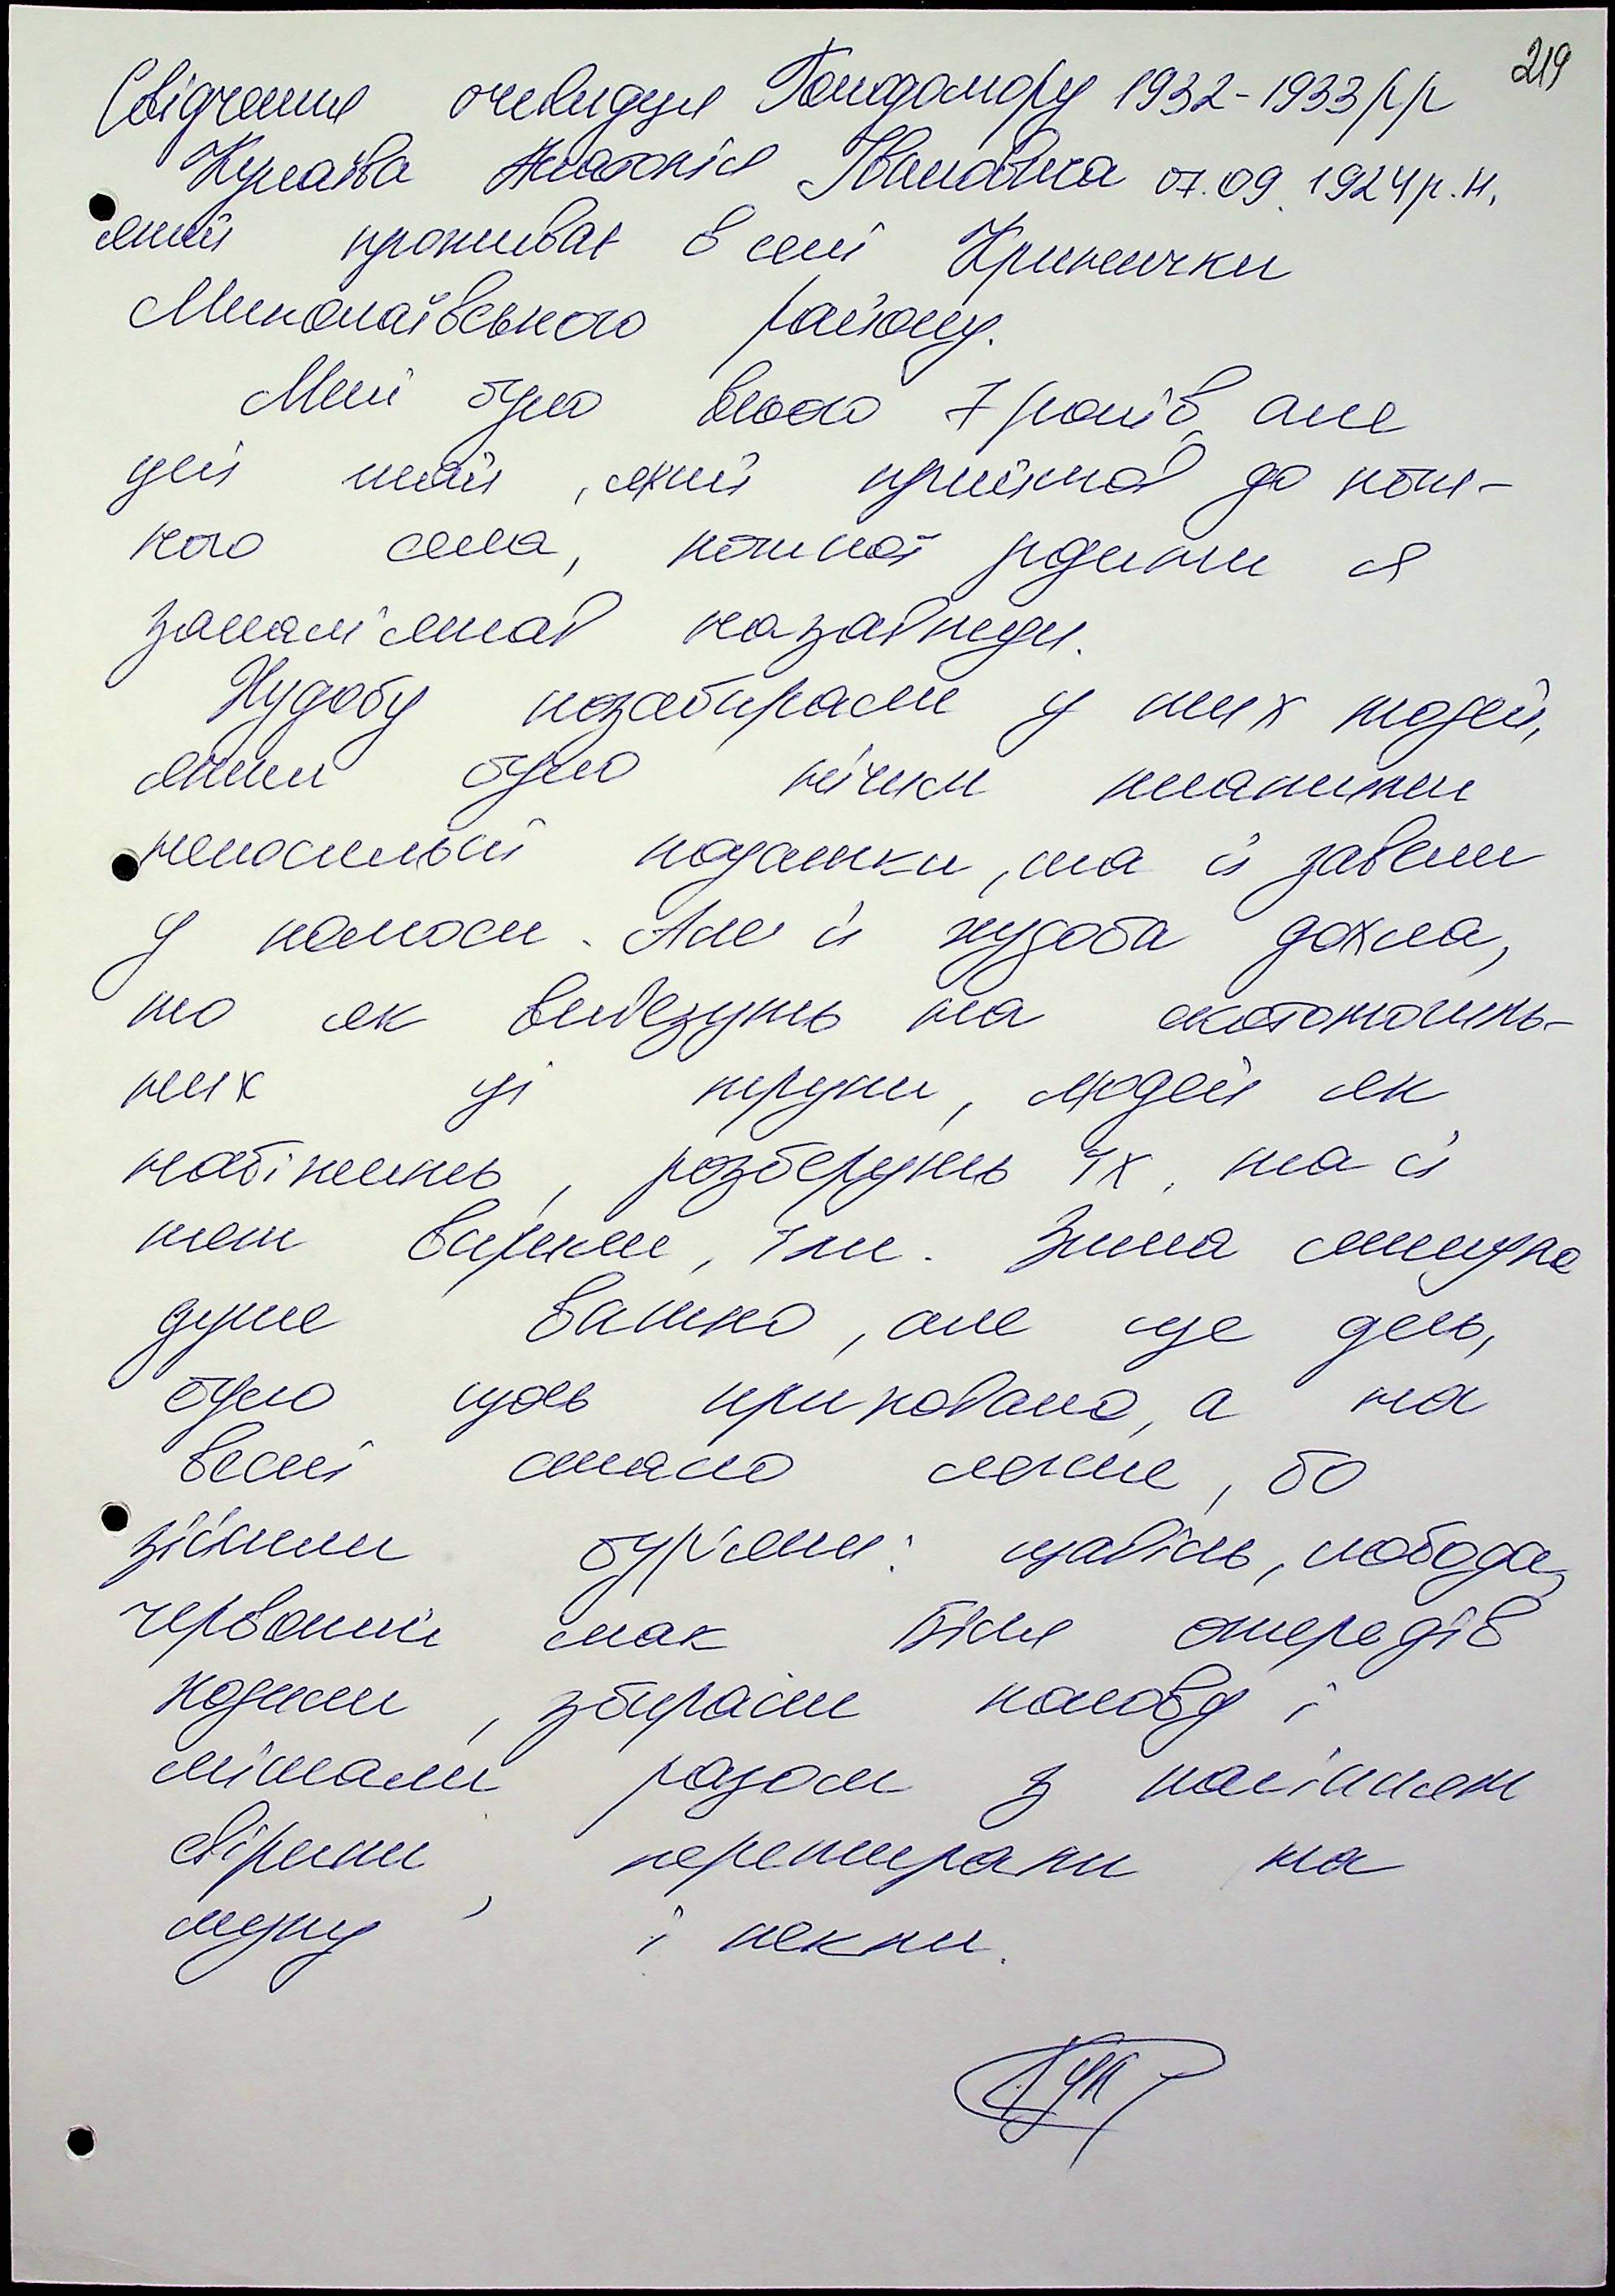 219
Свідчення очевидця Голодомору 1932-1933 р/р
Кулаїва Анатолія Івановича 07.09.1924 р.н.
який проживає в селі Кринички
Миколаївського району.
Мені було всього 7 років, але
цей жах, який прийшов до кож-
ного села, кожної родини я
запам'ятав назавжди.
Худобу позабирали у тих людей,
яким було нічим платити
непосильні податки, та й завели
у колгосп. Але й худоба дохла,
то як вивезуть на скотомогиль-
них ці трупи, людей як
набіжить, розберуть їх, та й
теж варили, їли. Зима минула
дуже важко, але ще десь,
було щось приховано, а на
весні стало легше, бо
зійшли бур'яни: щавель, лобода,
червоний мак біля ожередів
ходили, збирали полову і
мішали разом з насінням
свіріпи, перетирали на
муку і пекли.